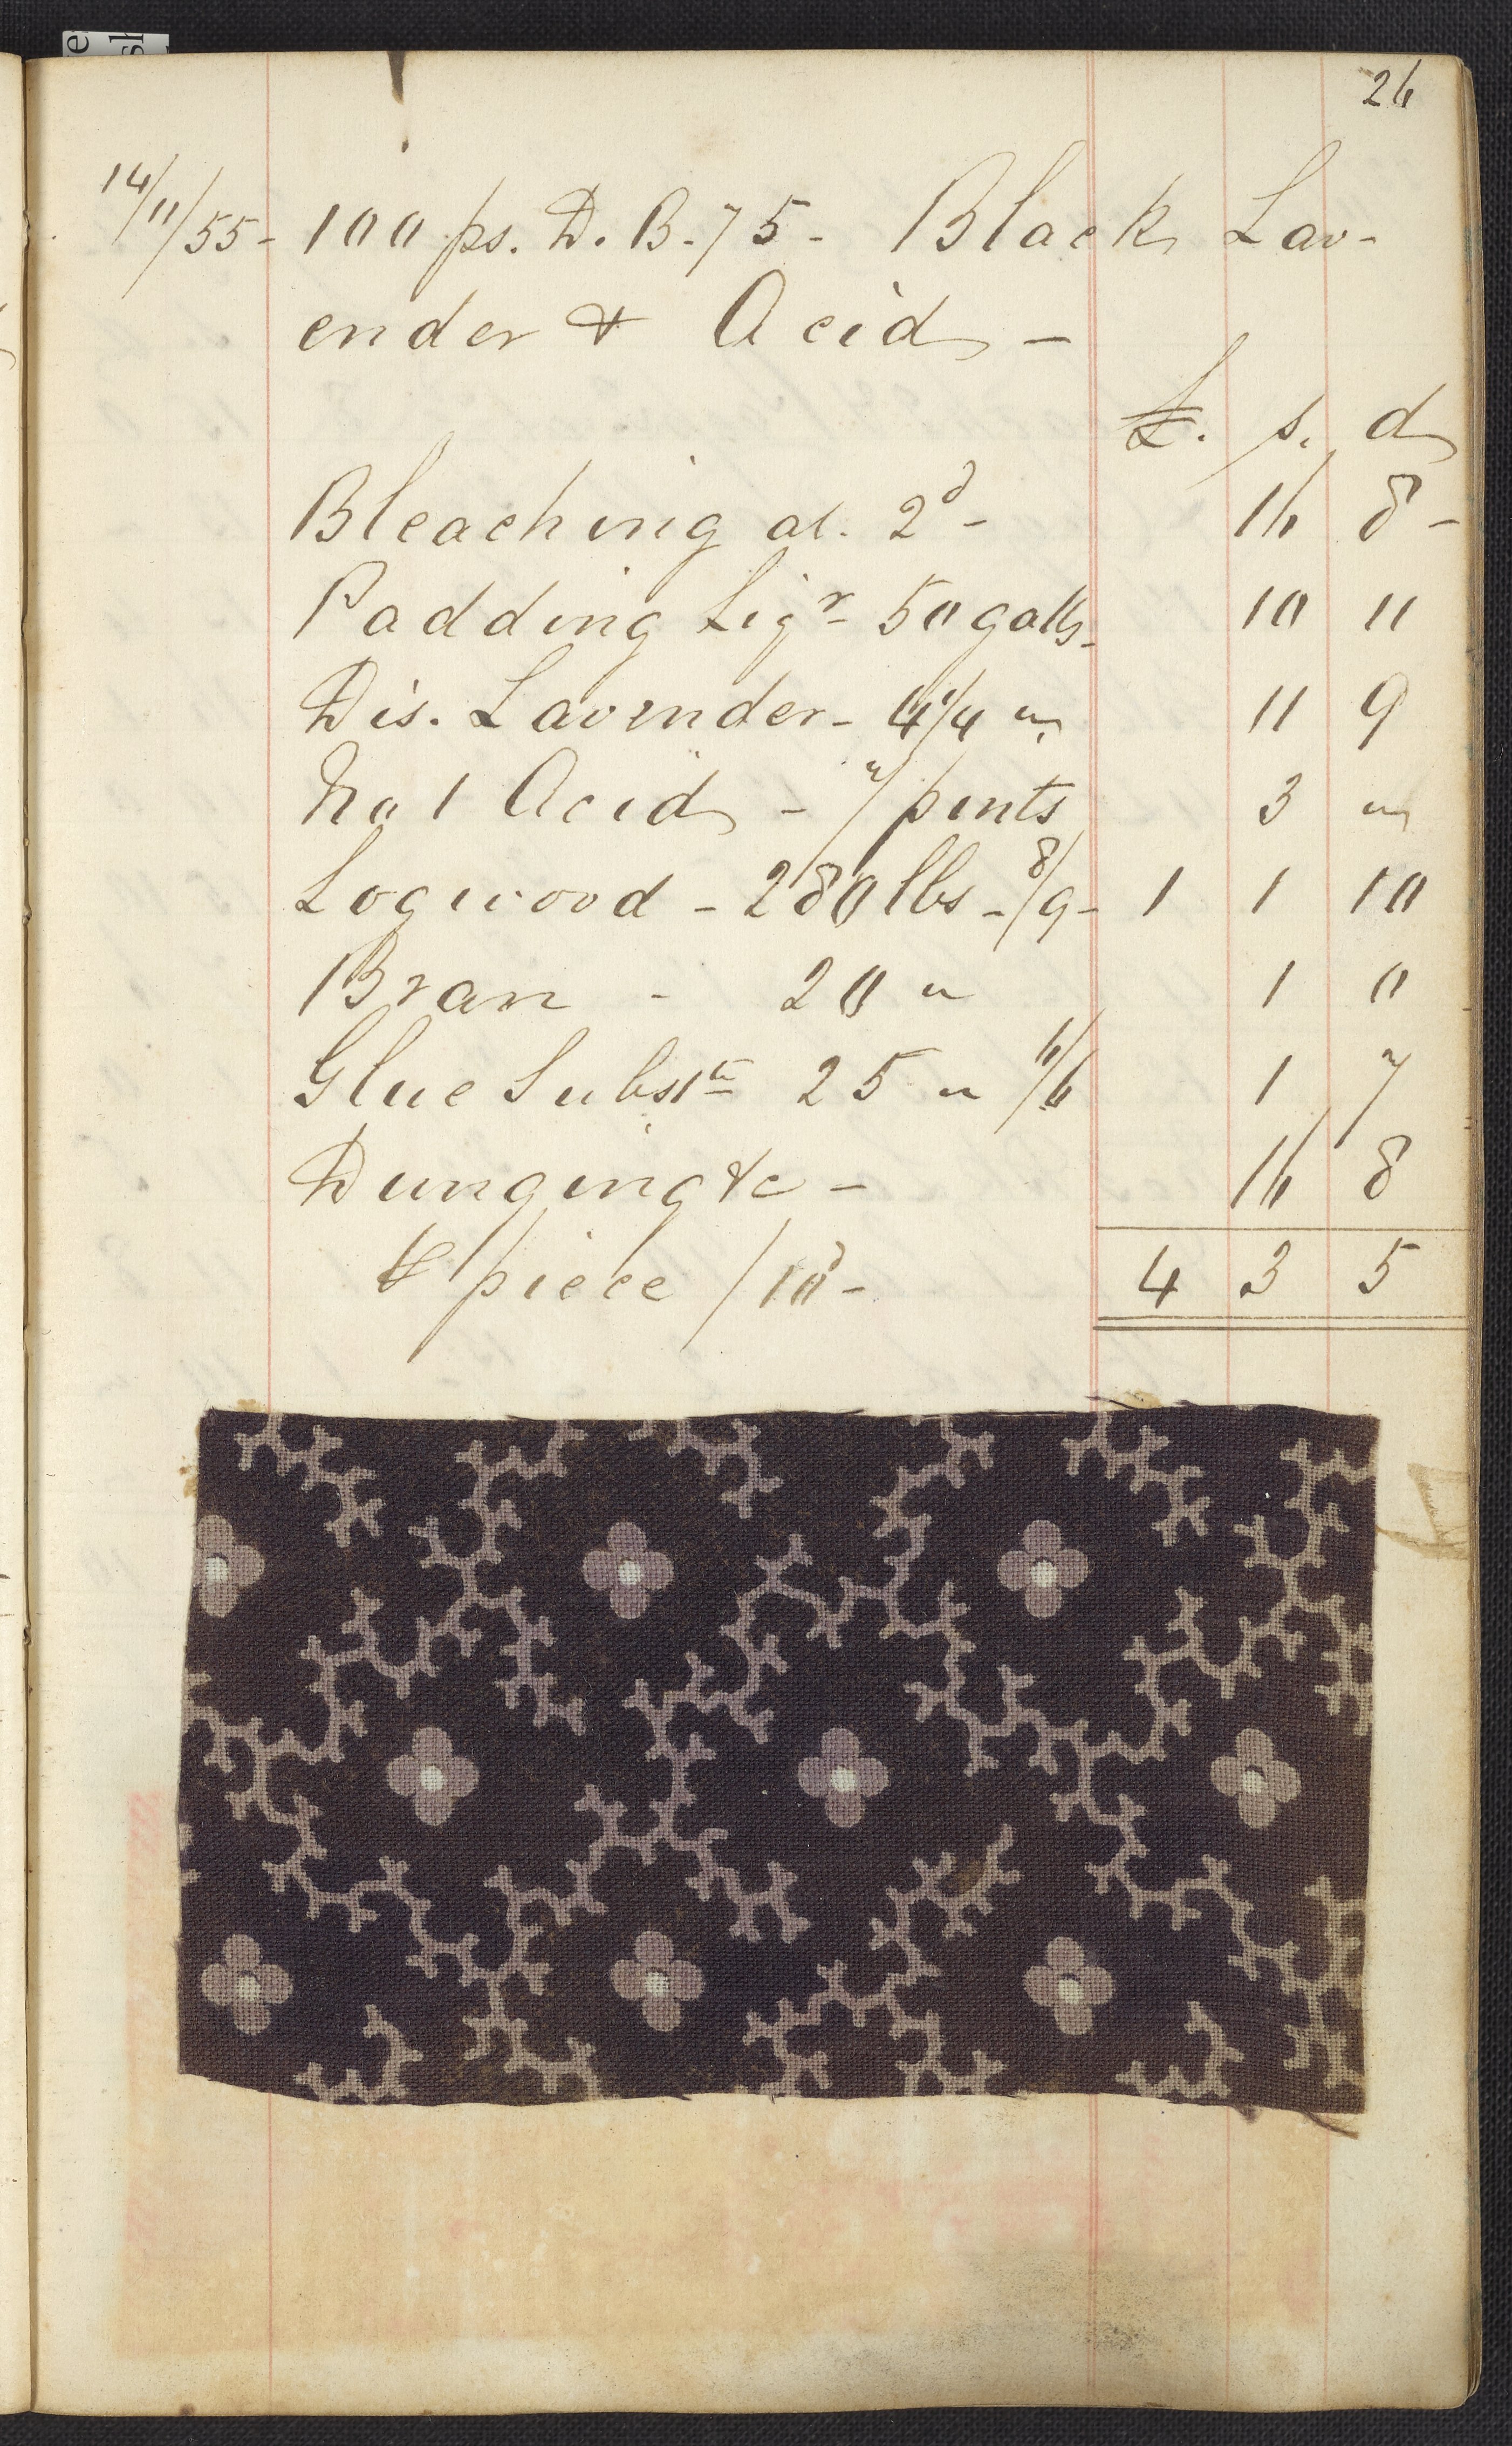 26
14/11/55 - 100 ps. D. B. 75 - Black Lav-
ender & Acid -
£. s. d
Bleaching at. 2d - 16 8 -
Padding Liqr 50 galls - 10 11
Dis. Lavender - 4 1/4 " 11 9
No 1 Acid - 7 pints 3 "
Logwood - 280 lbs - 8/9 - 1 1 10
Bran - 20 " 1 0
Glue Subste 25 " 6/6 1 7
Dunging &c - 16 8
⅌ piece /10d - 4 3 5